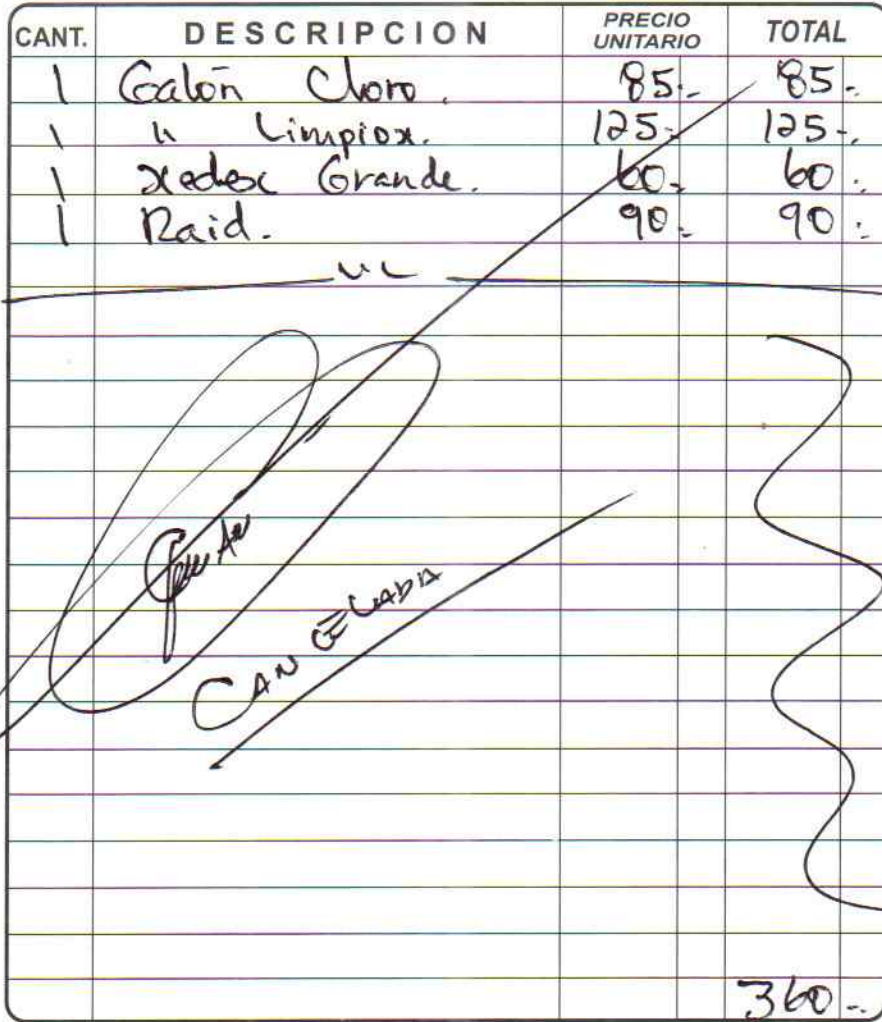 CANT. DESCRIPCION PRECIO UNITARIO TOTAL
1 Galón Cloro. 85.- 85.-
1 " Limpiox. 125.- 125-.
1 xedex Grande. 60.- 60.-
1 Raid. 90.- 90.-
CANCELADA
360-.